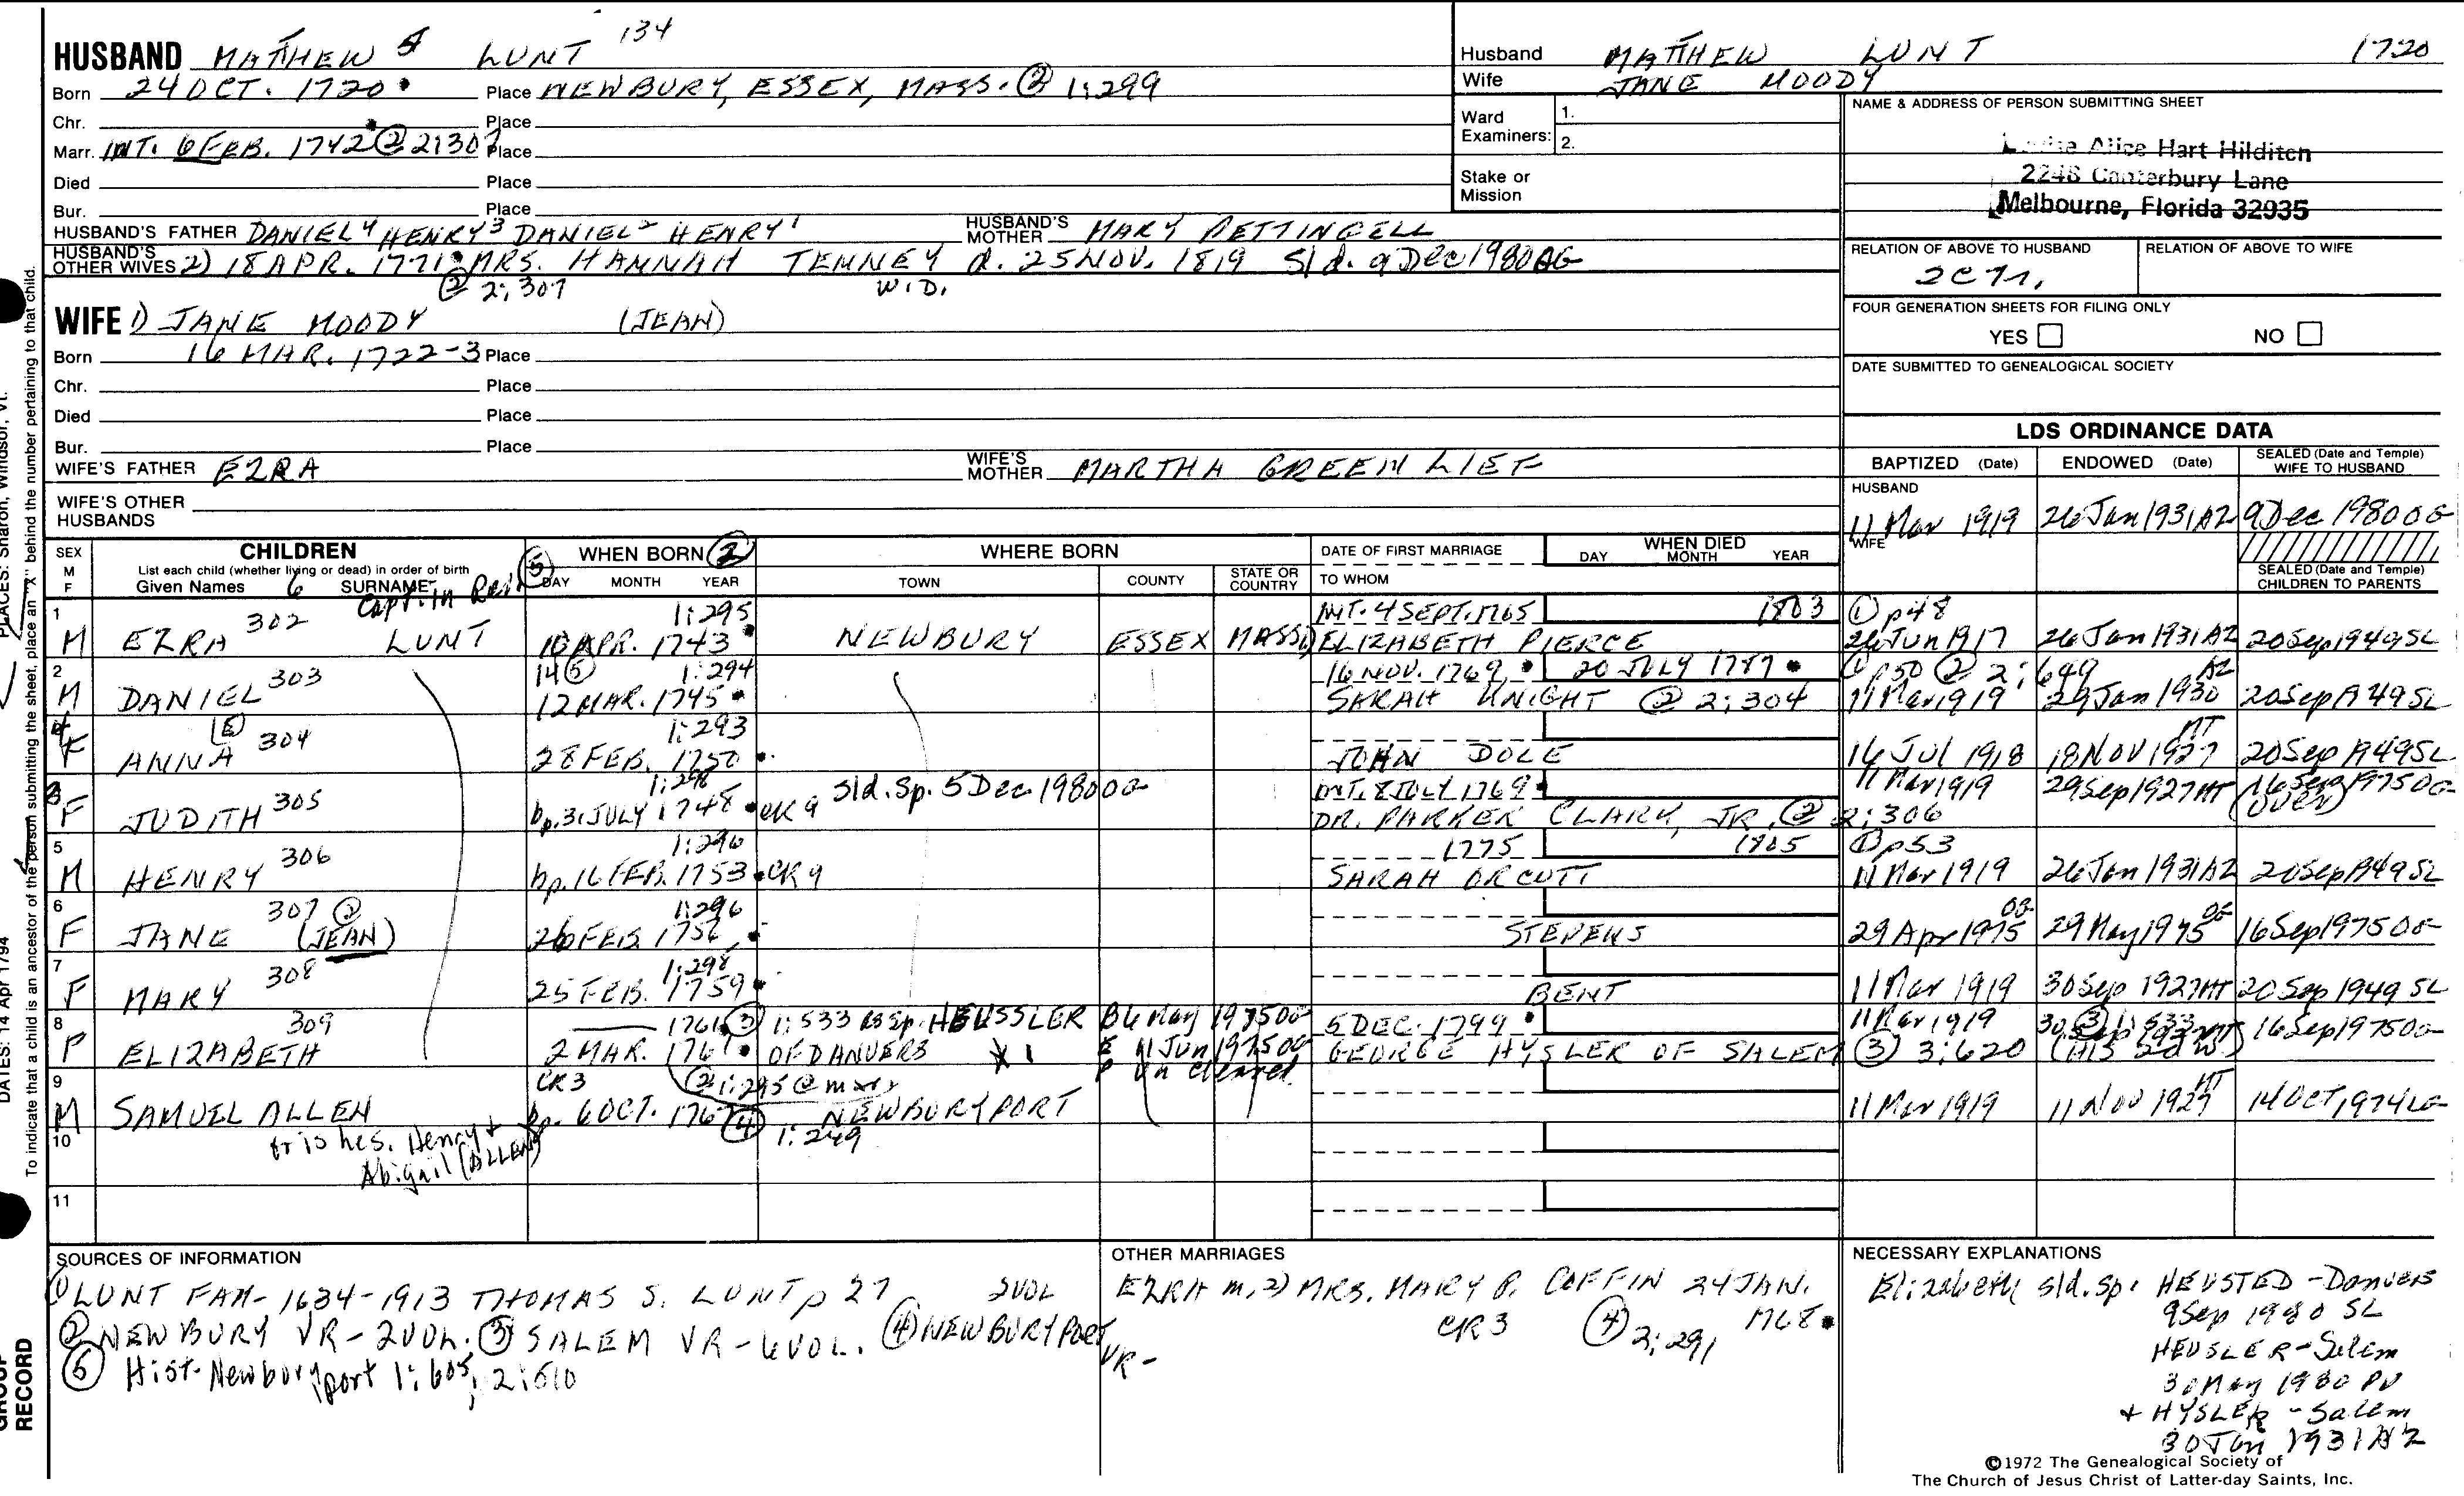 HUSBAND MATTHEW 5 LUNT 134
Born 24 OCT. 1720 Place NEWBURY, ESSEX, MASS. (2) 1:299
Chr. Place
Marr. INT. 6 FEB. 1742 (2) 2:307 Place
Died Place
Bur. Place
HUSBAND'S FATHER DANIEL 4 HENRY 3 DANIEL 2 HENRY 1 HUSBAND'S MOTHER MARY PETTINGELL
HUSBAND'S OTHER WIVES 2) 18 APR. 1771 MRS. HANNAH TENNEY d. 25 NOV. 1819 Sld. 9 Dec 1980 OG
(2) 2:307 WID.
WIFE 1) JANE MOODY (JEAN)
Born 16 MAR. 1722-3 Place
Chr. Place
Died Place
Bur. Place
WIFE'S FATHER EZRA WIFE'S MOTHER MARTHA GREENLIEF
WIFE'S OTHER HUSBANDS
Husband MATTHEW LUNT 1720
Wife JANE MOODY
Ward Examiners: 1.
2.
Stake or Mission
NAME & ADDRESS OF PERSON SUBMITTING SHEET
Alice Hart Hilditch
2248 Canterbury Lane
Melbourne, Florida 32935
RELATION OF ABOVE TO HUSBAND RELATION OF ABOVE TO WIFE
FOUR GENERATION SHEETS FOR FILING ONLY
YES NO
DATE SUBMITTED TO GENEALOGICAL SOCIETY
LDS ORDINANCE DATA
BAPTIZED (Date) ENDOWED (Date) SEALED (Date and Temple) WIFE TO HUSBAND
HUSBAND
11 Mar 1919 26 Jan 1931 AZ 9 Dec 1980 OG
WIFE
SEALED (Date and Temple) CHILDREN TO PARENTS
SEX M F CHILDREN WHEN BORN (2) WHERE BORN DATE OF FIRST MARRIAGE WHEN DIED
List each child (whether living or dead) in order of birth
Given Names 6 SURNAME (5) DAY MONTH YEAR TOWN COUNTY STATE OR COUNTRY TO WHOM DAY MONTH YEAR
Capt. in
1 302 1:295 INT. 4 SEPT. 1765 1803 (1) p48
M EZRA LUNT APR. 1743 NEWBURY ESSEX MASS 1) ELIZABETH PIERCE 26 Jun 1917 26 Jan 1931 AZ 20 Sep 1949 SL
2 303 14 (5) 1:294 16 NOV. 1769 20 JULY 1787 (1) p50 (2) 2:649
M DANIEL 12 MAR. 1745 SARAH KNIGHT @ 2:304 11 Mar 1919 29 Jan 1930 AZ 20 Sep 1949 SL
4 (E) 304 1:293
F ANNA 28 FEB. 1750 JOHN DOLE 16 Jul 1918 18 NOV 1927 20 Sep 1949 SL
3 305 1:298 sld. Sp. 5 Dec 1980 OG INT. 8 JULY 1769 11 Mar 1919 29 Sep 1927 16 Sep 1975 OG
F JUDITH bp. 31 JULY 1748 CR 9 DR. PARKER CLARK, JR. (2) 2:306 (OVER)
5 306 1:296 1775 1805 (1) p53
M HENRY bp. 16 FEB. 1753 CR 9 SARAH ORCUTT 11 Mar 1919 26 Jan 1931 AZ 20 Sep 1949 SL
6 307 @ 1:296
F JANE (JEAN) 26 FEB. 1756 STEVENS 29 Apr 1975 OG 29 May 1975 OG 16 Sep 1975 OG
7 308 1:298
F MARY 25 FEB. 1759 BENT 11 Mar 1919 30 Sep 1927 20 Sep 1949 SL
8 309 1761 (3) 1:533 HEUSSLER B 6 May 1975 OG 5 DEC. 1799 11 Mar 1919 (3) 1:533 16 Sep 1975 OG
ELIZABETH 2 MAR. 1761 OF DANVERS X 1 E 11 Jun 1975 OG GEORGE HYSLER OF SALEM (3) 3:620
9 CR3 (2) 1:295
M SAMUEL ALLEN bp. 6 OCT. 1767 (4) NEWBURYPORT 11 Mar 1919 11 NOV 1927 14 OCT 1974
1:249
10 or is hes. Henry +
Abigail (ALLEN)
11
SOURCES OF INFORMATION
(1) LUNT FAM- 1634-1913 THOMAS S. LUNT p 27 2 VOL
(2) NEWBURY VR - 2 VOL. (3) SALEM VR - 6 VOL. (4) NEWBURYPORT VR -
(5) Hist. Newburyport 1:605, 2:510
OTHER MARRIAGES
EZRA m. 2) MRS. MARY P. COFFIN 24 JAN.
CR3 (4) 2:291 1768
NECESSARY EXPLANATIONS
Elizabeth sld. sp. HEUSTED - Danvers
9 Sep 1980 SL
HEUSLER - Salem
30 May 1980 PV
+ HYSLER - Salem
30 Jan 1931 AZ
©1972 The Genealogical Society of
The Church of Jesus Christ of Latter-day Saints, Inc.
PLACES: Sharon, Windsor, Vt.
DATES: 14 Apr 1794
To indicate that a child is an ancestor of the person submitting the sheet, place an "X" behind the number pertaining to that child.
GROUP RECORD